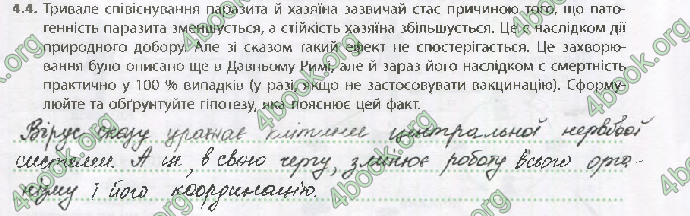 4.4. Тривале співіснування паразита й хазяїна зазвичай стає причиною того, що пато-
генність паразита зменшується, а стійкість хазяїна збільшується. Це є наслідком дії
природного добору. Але зі сказом такий ефект не спостерігається. Це захворю-
вання було описано ще в Давньому Римі, але й зараз його наслідком є смертність
практично у 100 % випадків (у разі, якщо не застосовувати вакцинацію). Сформу-
люйте та обґрунтуйте гіпотезу, яка пояснює цей факт.
Вірус сказу уражає клітини центральної нервової
системи. А ця, в свою чергу, змінює роботу всього орга-
нізму і його координацію.
4book.org